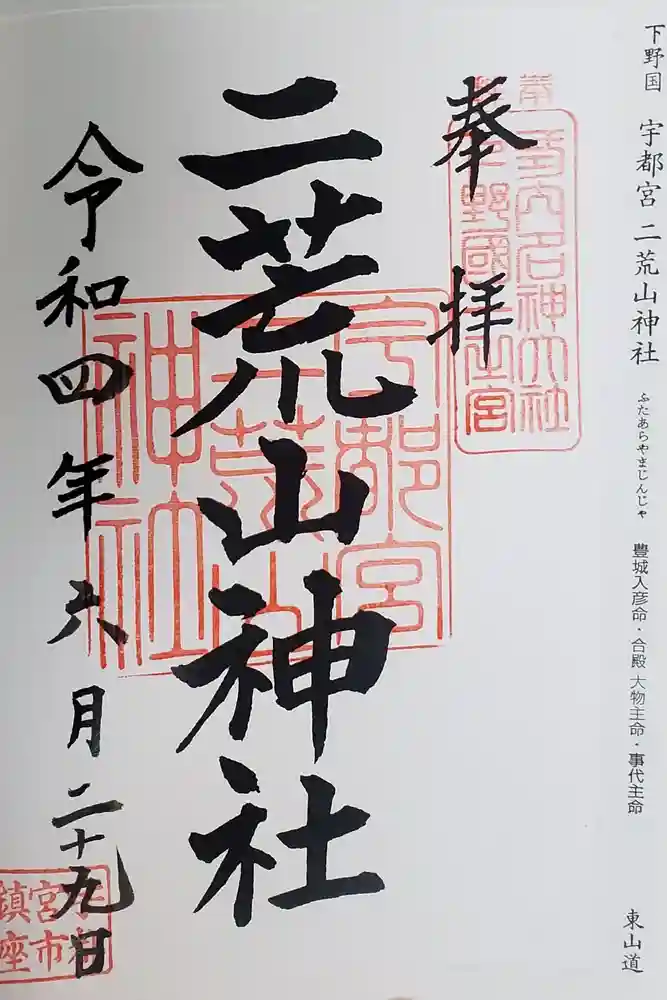 下野国 宇都宮 二荒山神社 ふたあらやまじんじゃ 豊城入彦命・合殿 大物主命・事代主命 東山道
奉拝
二荒山神社
令和四年六月二十九日
宇都宮
二荒山
神社
名神大社
宮市
鎮座